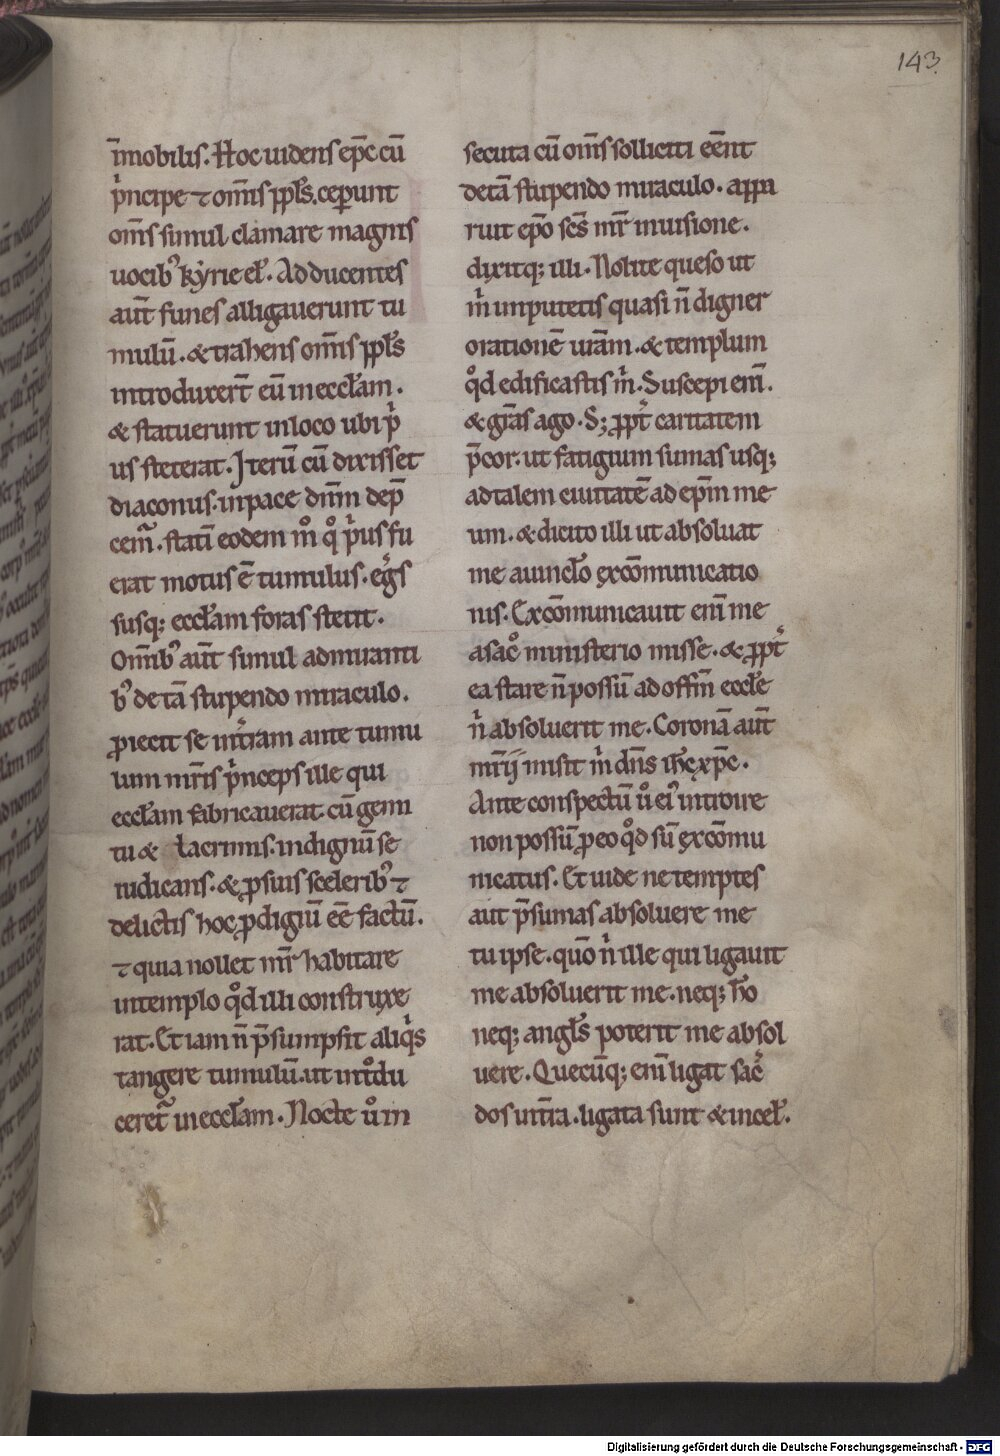 143
īmobilis. Hoc uidens ep̄c cū
p̾ncipe ⁊ om̄is ppl̄s. ceperunt
om̄s simul clamare magnis
uocib᾽ kyrie el̄. Adducentes
aut̄ funes alligauerunt tu
mulū. & trahens om̄is ppl̄s
introduxert̄ eū in eccl̄am.
& statuerunt in loco ubi p̾
us steterat. Iterū cū dixisset
diaconus. in pace dn̄m dep̄
cem̄. stati eodem m̊ q̊ p̾us fu
erat motus ē tumulus. eg̾s
susq; eccl̄am foras stetit.
Om̄ib᾽ aut̄ simul admiranti
b᾽ de tā stupendo miraculo.
ꝓiecit se int̾ram ante tumu
lum mr̄is p̾nceps ille qui
eccl̄am fabricauerat. cū gemi
tu & lacrimis. indignū se
iudicans. & ꝓ suis sceleribꝰ ⁊
delictis hoc ꝓdigiū eē factū.
⁊ quia nollet mr̄ habitare
in templo qd̊ illi construxe
rat. Et iam n̄ p̄sumpsit aliq̾s
tangere tumulū. ut int̊du
ceret̄ in eccl̄am. Nocte ů in
secuta cū om̄s solliciti eēnt
de tā stupendo miraculo. appa
ruit ep̄o sc̄s mr̄ in uisione.
dixitq; illi. Nolite queso ut
m̾ imputetis quasi n̄ digner
orationē urām. & templum
qd̊ edificastis m̾. Suscepi eni̅.
& grās ago. S; ꝓpt̾ caritatem
p̄cor. ut fatigium sumas usq;
ad talem ciuitatē ad ep̄m me
um. & dicito illi ut absoluat
me a uincl̄o excōmunicatio
nis. Excōmunicauit eni̅ me
a sac̊ ministerio misse. & ꝓpt̾
ea stare n̄ possū ad offm̄ eccl̄e
n̾ absoluerit me. Coronā aut̄
mr̄ij misit m̾ dn̄s ih̄c xp̄c.
Ante conspectū ů ei᾽ introire
non possū ꝓ eo qd̊ sū excōmu
nicatus. Et uide ne temptes
aut p̄sumas absoluere me
tu ipse. quō n̾ ille qui ligauit
me absoluerit me. neq; h̄o
neq; angl̄s poterit me absol
uere. Quecūq; eni̅ ligat sac̾
dos in tr̄a. ligata sunt & in cel̄.
Digitalisierung gefördert durch die Deutsche Forschungsgemeinschaft - DFG